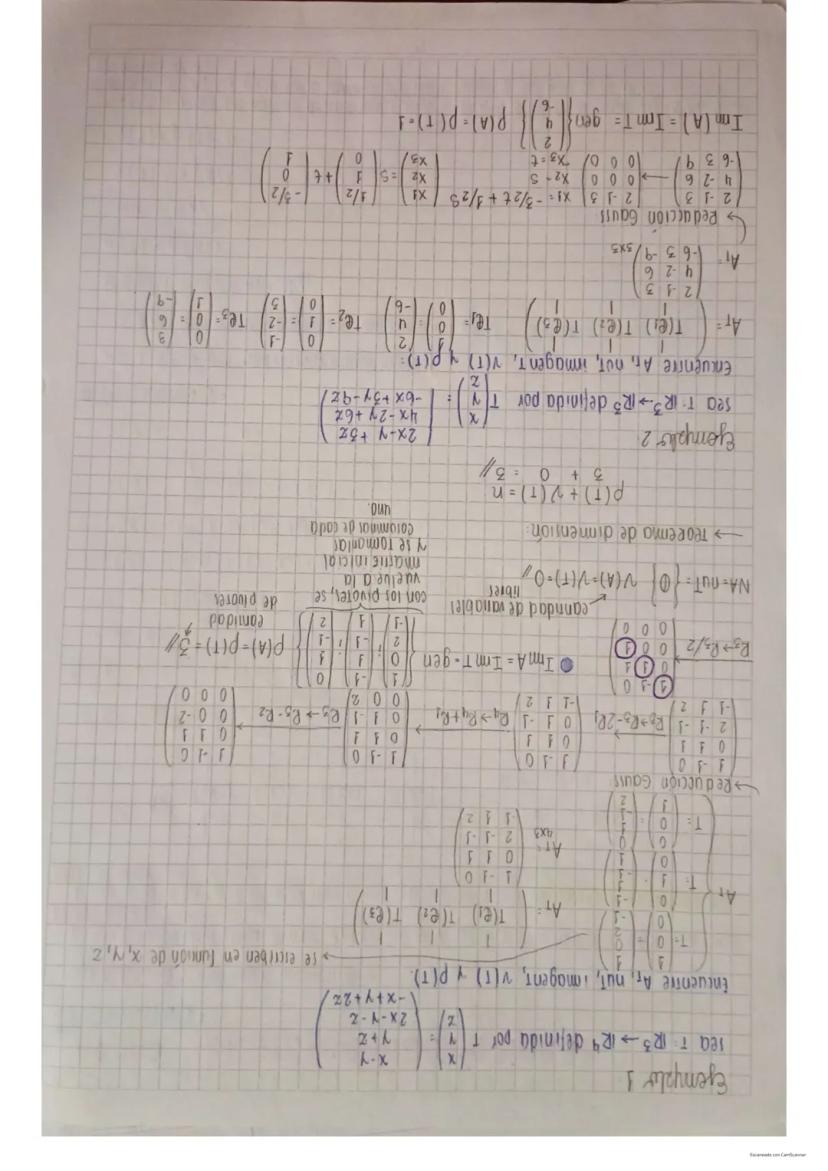 Ejemplo 1
sea T: ℝ³ → ℝ⁴ definida por T (x y z) = (x-y
y+z
2x-y-z
-x+y+2z)
Encuentre A_T, nuT, imagenT, ν(T) y ρ(T).
→ se escriben en función de x, y, z
A_T
T= (1 0 0) = (1 0 2 -1)
T= (0 1 0) = (-1 1 -1 1)
T= (0 0 1) = (0 1 -1 2)
A_T = (T(e1) T(e2) T(e3))
A_T = 4x3
1 -1 0
0 1 1
2 -1 -1
-1 1 2
→ Reducción Gauss
1 -1 0
0 1 1
2 -1 -1
-1 1 2
R3→R3-2R1
1 -1 0
0 1 1
0 1 -1
-1 1 2
R4→R4+R1
1 -1 0
0 1 1
0 1 -1
0 0 2
R3→R3-R2
1 -1 0
0 1 1
0 0 -2
0 0 0
R3→R3/2
1 -1 0
0 1 1
0 0 1
0 0 0
ImA = ImT = gen {(1 0 2 -1); (-1 1 -1 1); (0 1 -1 2)} ρ(A)=ρ(T)=3//
cantidad de pivotes
con los pivotes, se
vuelve a la
matriz inicial
y se toman las
columnas de cada
uno.
cantidad de variables
libres
NA=nuT= {0} ν(A)=ν(T)=0//
→ Teorema de dimensión:
ρ(T)+ν(T)=n
3 + 0 = 3//
Ejemplo 2
sea T: ℝ³→ℝ³ definida por T (x y z) = (2x-y+3z
4x-2y+6z
-6x+3y-9z)
Encuentre A_T, nuT, imagenT, ν(T) y ρ(T):
A_T = (T(e1) T(e2) T(e3)) Te1 = (1 0 0) = (2 4 -6) Te2 = (0 1 0) = (-1 -2 3) Te3 = (0 0 1) = (3 6 -9)
A_T = 3x3
2 -1 3
4 -2 6
-6 3 -9
→ Reducción Gauss
2 -1 3
4 -2 6
-6 3 9
→
2 -1 3
0 0 0
0 0 0
x1 = -3/2t + 1/2s
x2 = s
x3 = t
(x1 x2 x3) = s (1/2 1 0) + t (-3/2 0 1)
Im(A) = ImT = gen {(2 4 -6)} ρ(A)=ρ(T)=1
Escaneado con CamScanner